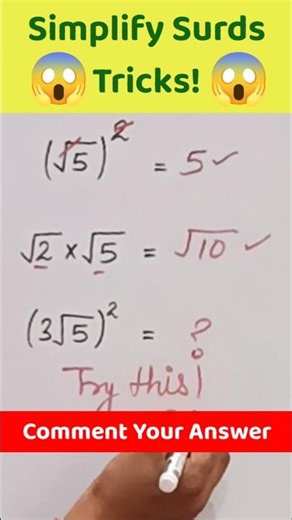 Simplify Surds
😱 Tricks! 😱
(√5)² = 5 ✓
√2 × √5 = √10 ✓
(3√5)² = ?
Try this!
Comment Your Answer